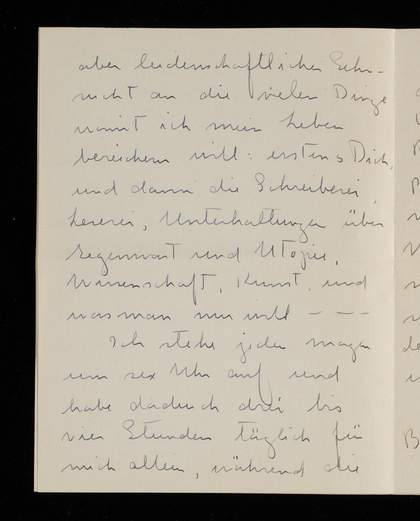 aber leidenschaftlicher Sehn-
sucht an die vielen Dinge
womit ich mein Leben
bereichern will: erstens Dich,
und dann die Schreiberei,
Leserei, Unterhaltungen über
Gegenwart und Utopie,
Wissenschaft, Kunst, und
was man nur will - - -
Ich stehe jeden morgen
um sex Uhr auf und
habe dadurch drei bis
vier Stunden täglich für
mich allein, während die